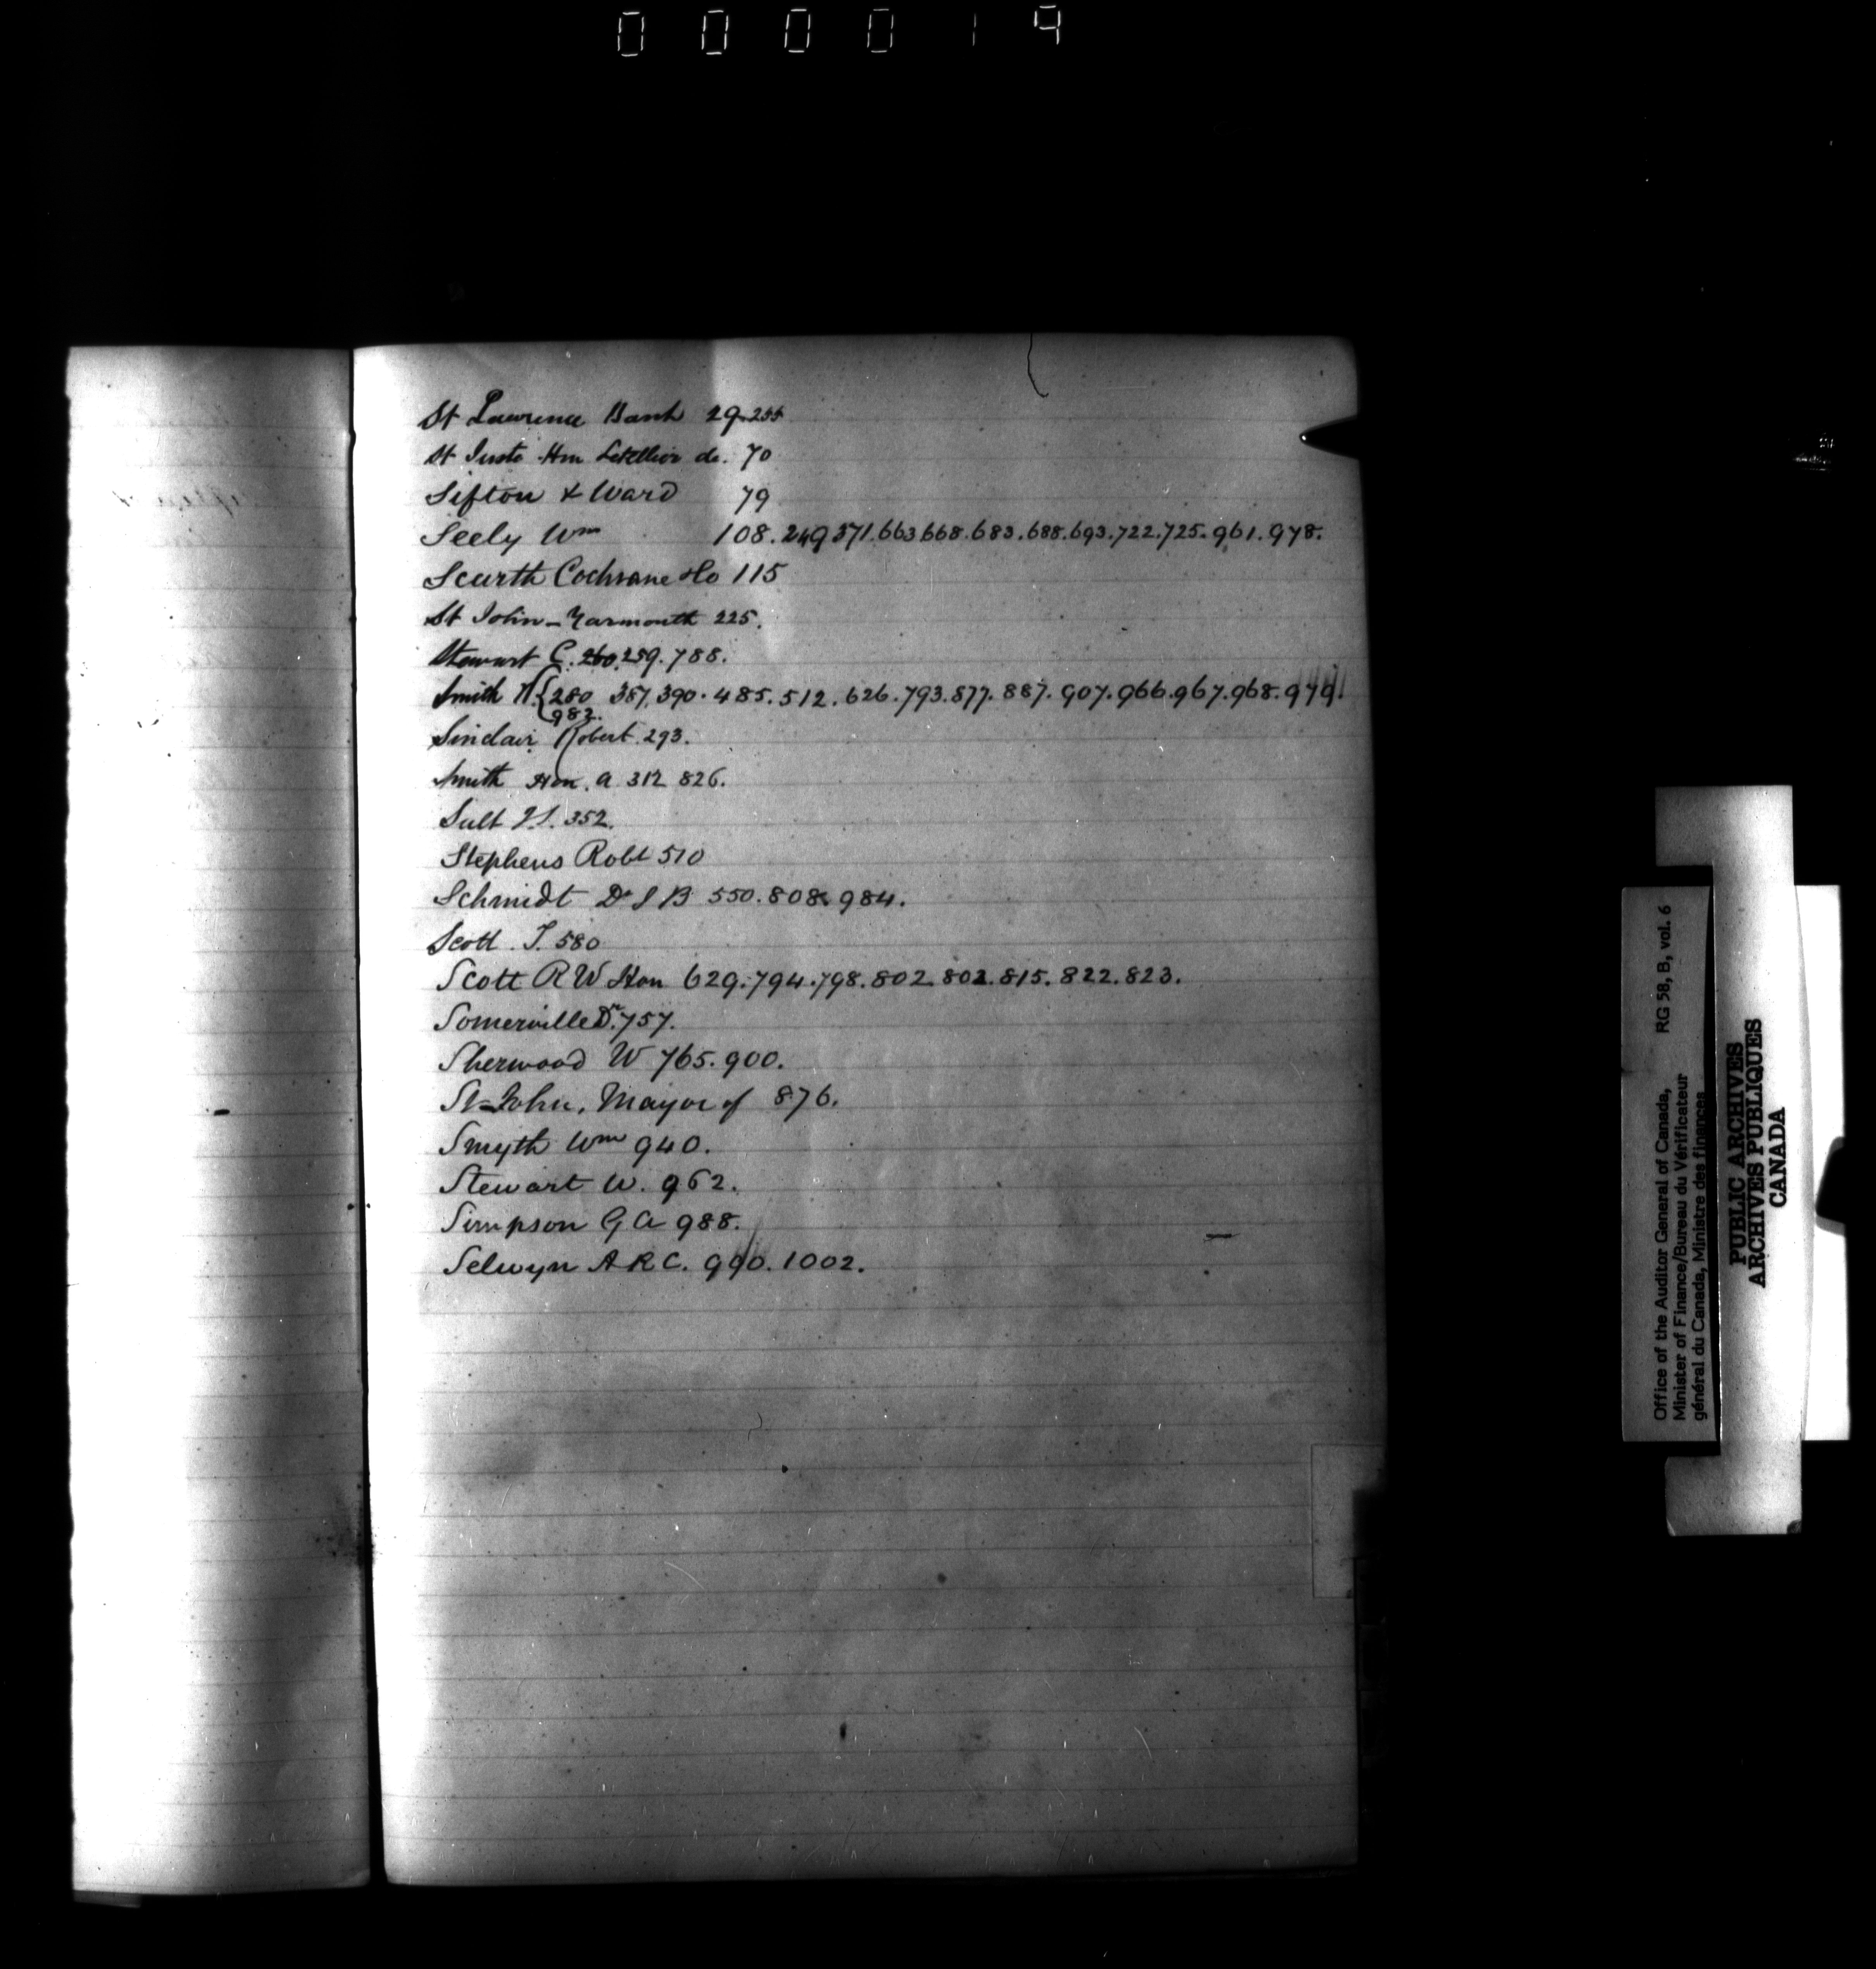 000019
St Lawrence Bank 29.255
St Juste Hon Letellier de. 70
Sifton & Ward 79
Seely Wm 108.249 371.663 668.683.688.693.722.725.961.978.
Scurth Cochrane &Co 115
St John-Yarmouth 225.
Stewart C. 260.259.788.
Smith H. {280 387.390.485.512.626.793.877.887.907.966.967.968.979.
982.
Sinclair Robert 293.
Smith Hon. A 312 826.
Sult J.S. 352.
Stephens Robt 510
Schmidt Dr J B 550.808.984.
Scott. T. 580
Scott R W Hon 629.794.798.802.802.815.822.823.
Somerville Dr. 757.
Sherwood W 765.900.
St-John, Mayor of 876.
Smyth Wm 940.
Stewart W. 962.
Simpson G A 988.
Selwyn A R C. 990.1002.
Office of the Auditor General of Canada, RG 58, B, vol. 6
Minister of Finance/Bureau du Vérificateur
général du Canada, Ministre des finances
PUBLIC ARCHIVES
ARCHIVES PUBLIQUES
CANADA